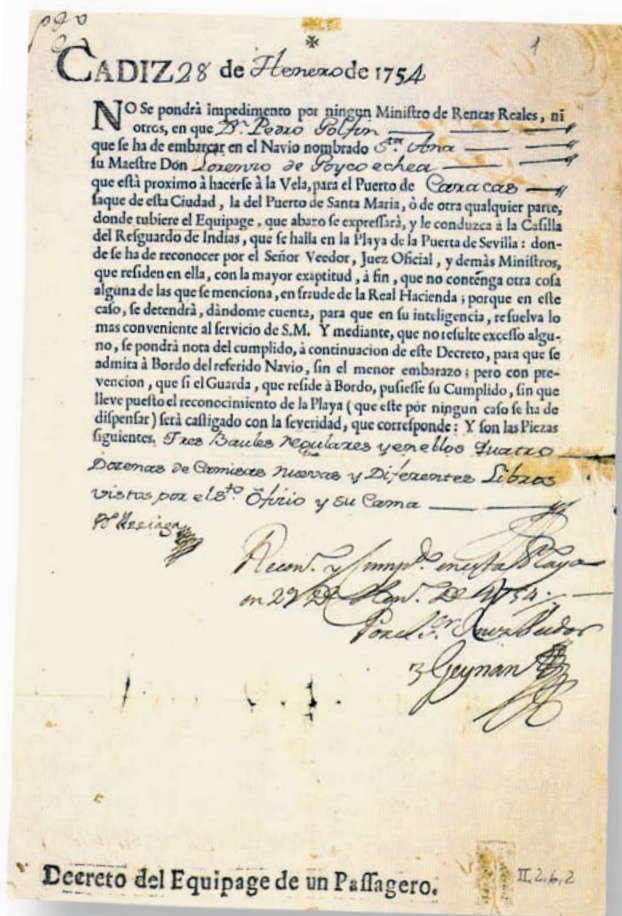 1
CADIZ 28 de Henero de 1754
NO Se pondrà impedimento por ningun Ministro de Rentas Reales, ni
otros, en que Dn. Pedro Golfin
que se ha de embarcar en el Navio nombrado Sta. Ana
su Maestre Don Lorenzo de Goycoechea
que està proximo à hacerse à la Vela, para el Puerto de Caracas
saque de esta Ciudad, la del Puerto de Santa Maria, ò de otra qualquier parte,
donde tubiere el Equipage, que abaxo se expressarà, y le conduzca à la Casilla
del Resguardo de Indias, que se halla en la Playa de la Puerta de Sevilla: don-
de se ha de reconocer por el Señor Veedor, Juez Oficial, y demàs Ministros,
que residen en ella, con la mayor exaptitud, à fin, que no contenga otra cosa
alguna de las que se menciona, en fraude de la Real Hacienda; porque en este
caso, se detendrà, dàndome cuenta, para que en su inteligencia, resuelva lo
mas conveniente al servicio de S.M. Y mediante, que no resulte excesso algu-
no, se pondrà nota del cumplido, à continuacion de este Decreto, para que se
admita à Bordo del referido Navio, sin el menor embarazo; pero con pre-
vencion, que si el Guarda, que reside à Bordo, pusiesse su Cumplido, sin que
lleve puesto el reconocimiento de la Playa (que este por ningun caso se ha de
dispensar) serà castigado con la severidad, que corresponde: Y son las Piezas
siguientes. Tres Baules Regulares y en ellos Quatro
Dozenas de Camisas nuevas y Diferentes Libros
vistos por el Sto. Ofizio y su Cama
Recon. y Cumpd. en esta Playa
en 29 de Hen. de 1754.
Por el Sr. Juez Veedor
Geynan
Decreto del Equipage de un Passagero.
II, 2, 6, 2